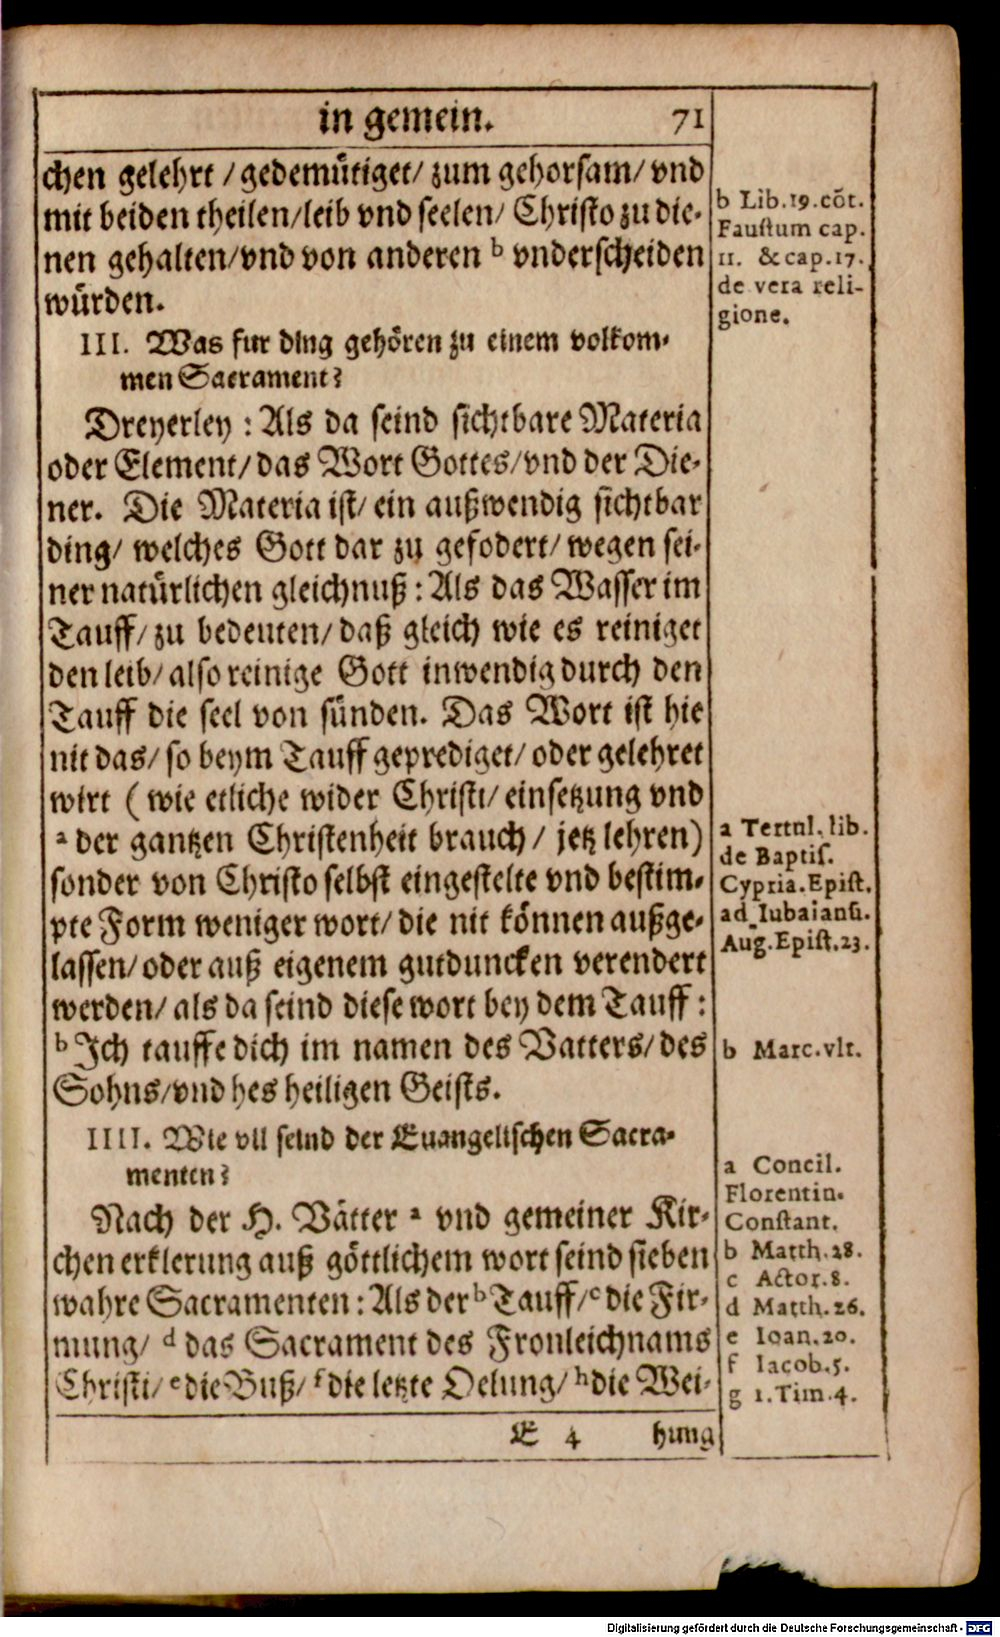 in gemein. 71
chen gelehrt / gedemütiget / zum gehorsam / vnd
mit beiden theilen / leib vnd seelen / Christo zu die-
nen gehalten / vnd von anderen b vnderscheiden
würden.
III. Was fur ding gehören zu einem volkom-
men Sacrament?
Dreyerley : Als da seind sichtbare Materia
oder Element / das Wort Gottes / vnd der Die-
ner. Die Materia ist / ein außwendig sichtbar
ding / welches Gott dar zu gefodert / wegen sei-
ner natürlichen gleichnuß : Als das Wasser im
Tauff / zu bedeuten / daß gleich wie es reiniget
den leib / also reinige Gott inwendig durch den
Tauff die seel von sünden. Das Wort ist hie
nit das / so beym Tauff geprediget / oder gelehret
wirt ( wie etliche wider Christi / einsetzung vnd
a der gantzen Christenheit brauch / jetz lehren)
sonder von Christo selbst eingestelte vnd bestim-
pte Form weniger wort / die nit können außge-
lassen / oder auß eigenem gutduncken verendert
werden / als da seind diese wort bey dem Tauff :
b Ich tauffe dich im namen des Vatters / des
Sohns / vnd hes heiligen Geists.
IIII. Wie vil seind der Euangelischen Sacra-
menten?
Nach der H. Vätter a vnd gemeiner Kir-
chen erklerung auß göttlichem wort seind sieben
wahre Sacramenten : Als der b Tauff / c die Fir-
mung / d das Sacrament des Fronleichnams
Christi / e die Buß / f die letzte Oelung / h die Wei-
E 4 hung
b Lib. 19. cõt.
Faustum cap.
11. & cap. 17.
de vera reli-
gione.
a Tertnl. lib.
de Baptis.
Cypria. Epist.
ad Iubaianū.
Aug. Epist. 23.
b Marc. vlt.
a Concil.
Florentin.
Constant.
b Matth. 28.
c Actor. 8.
d Matth. 26.
e Ioan. 20.
f Iacob. 5.
g 1. Tim. 4.
Digitalisierung gefördert durch die Deutsche Forschungsgemeinschaft - DFG